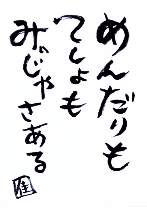 めんだりも
てしょも
みじゃさある